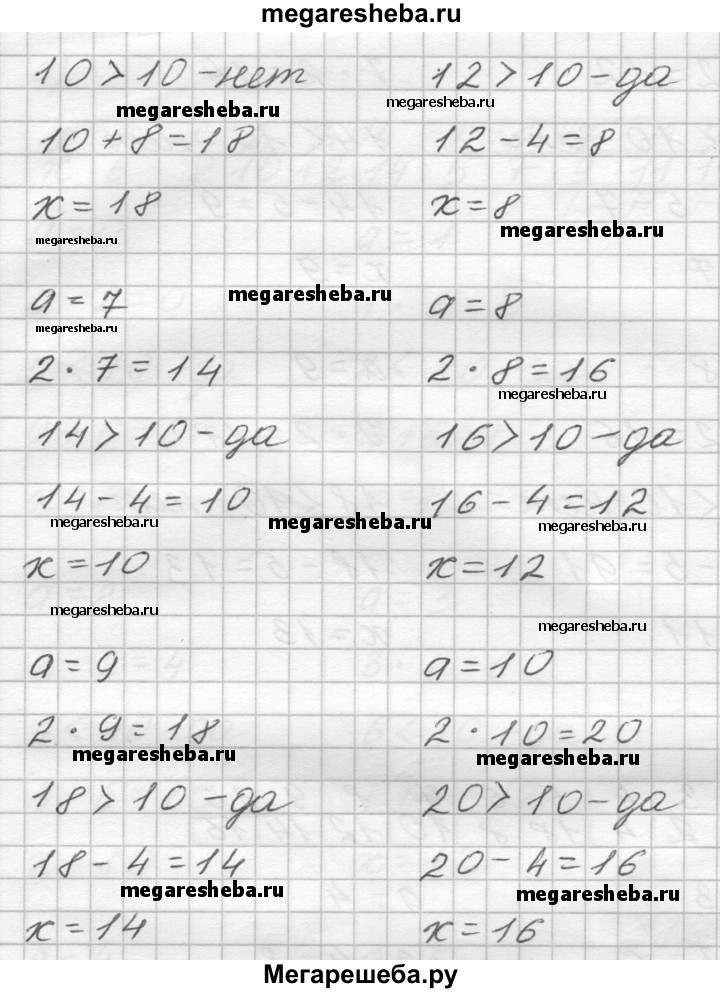 megaresheba.ru
10 > 10 - нет
12 > 10 - да
megaresheba.ru
megaresheba.ru
10 + 8 = 18
12 - 4 = 8
x = 18
x = 8
megaresheba.ru
megaresheba.ru
a = 7
megaresheba.ru
a = 8
megaresheba.ru
2 · 7 = 14
2 · 8 = 16
megaresheba.ru
14 > 10 - да
16 > 10 - да
14 - 4 = 10
16 - 4 = 12
megaresheba.ru
megaresheba.ru
megaresheba.ru
x = 10
x = 12
megaresheba.ru
megaresheba.ru
a = 9
a = 10
2 · 9 = 18
2 · 10 = 20
megaresheba.ru
megaresheba.ru
18 > 10 - да
20 > 10 - да
18 - 4 = 14
20 - 4 = 16
megaresheba.ru
megaresheba.ru
x = 14
x = 16
Мегарешеба.ру